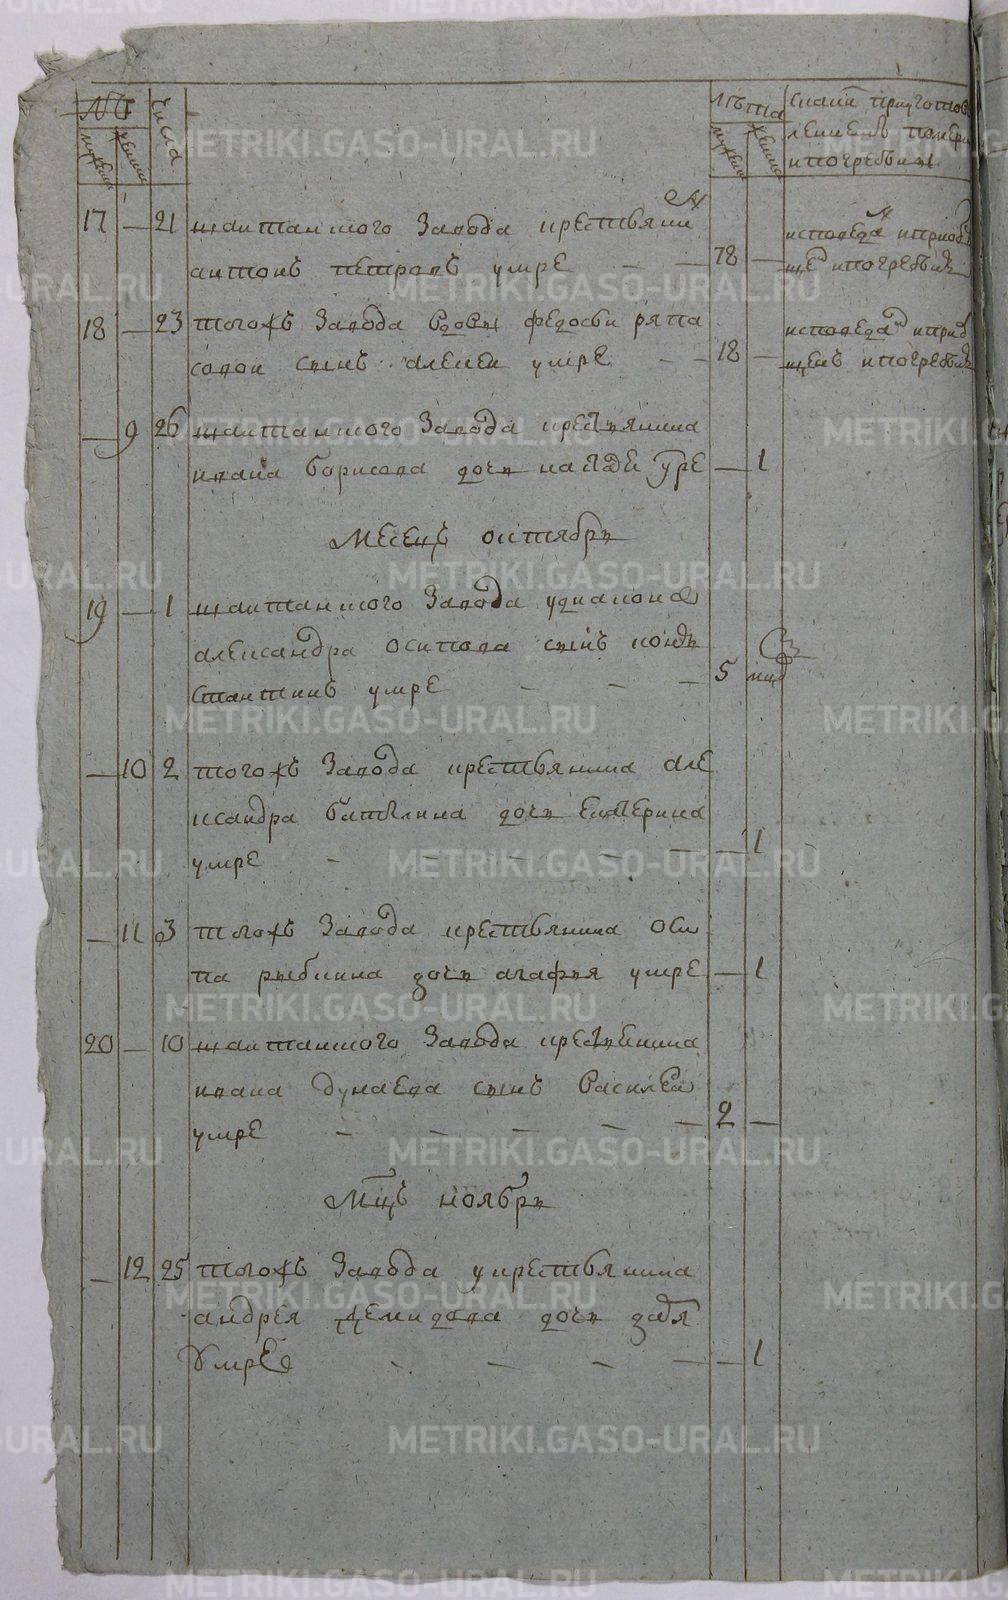 № числа лѣта
мужеска женска мужеска женска
17 — 21 шаитанского завода крестьянин
антонъ петровъ умре — — 78 — исповедан и приоб
щен и погребен
18 — 23 тогожъ завода вдовы федосьи
сын алексеи умре — — 18 — исповедан и приоб
щенъ и погребен
— 9 26 шаитанского завода крестьянина
ивана борисова дочь умре — 1
месецъ октябрь
19 — 1 шаитанского завода
александра осипова сынъ конъ
стантинъ умре — — — 5
— 10 2 тогожъ завода крестьянина але
ксандра дочь екатерина
умре — — — — — — 1
— 11 3 тогожъ завода крестьянина оси
па рыбкина дочь агафья умре — 1
20 — 10 шаитанского завода крестьянина
ивана дунаева сынъ василеи
умре — — — — — 2 —
мцъ ноябрь
— 12 25 тогожъ завода у крестьянина
андрея демидова дочь
умре — — — — — 1
METRIKI.GASO-URAL.RU